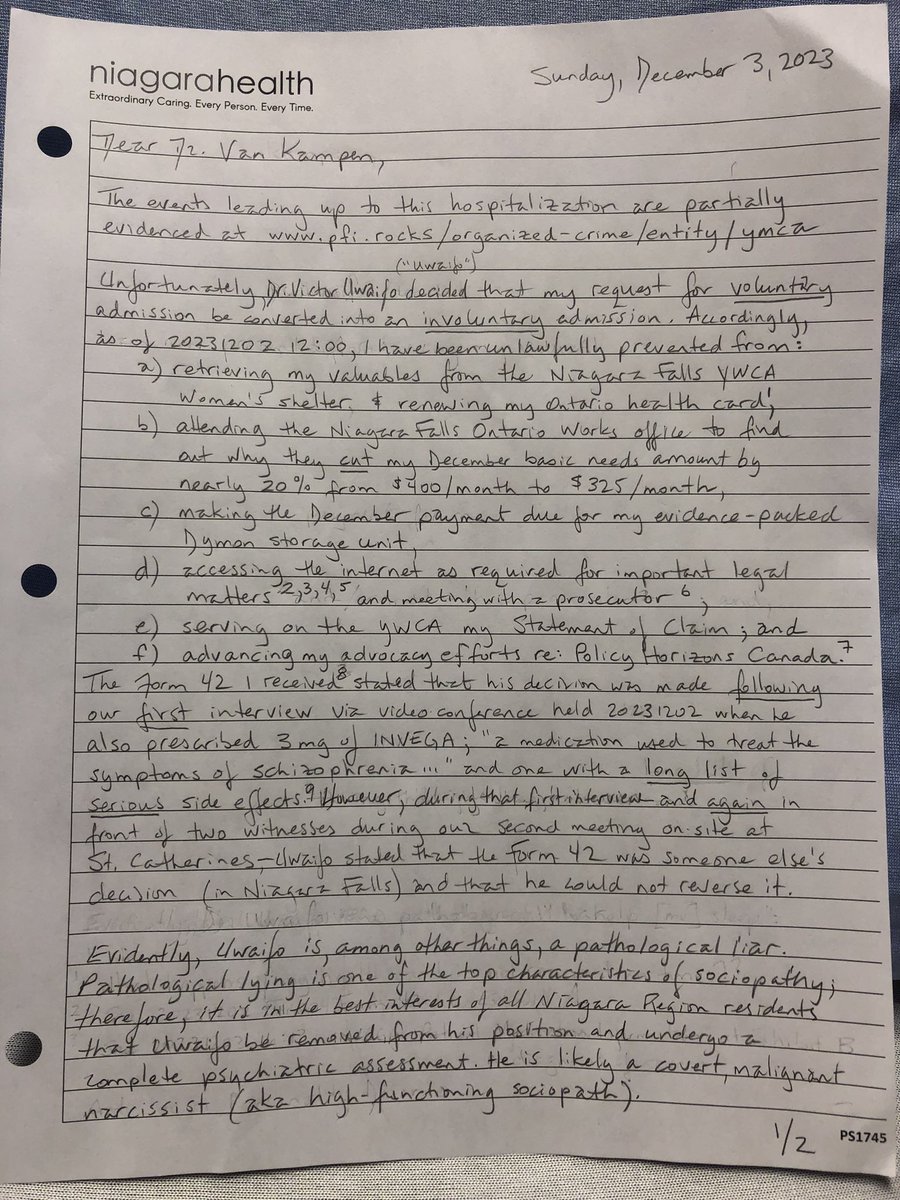 niagarahealth
Extraordinary Caring. Every Person. Every Time.
Sunday, December 3, 2023
Dear Dr. Van Kampen,
The events leading up to this hospitalization are partially
evidenced at www.pfi.rocks/organized-crime/entity/ymca
("Uwaifo")
Unfortunately, Dr. Victor Uwaifo decided that my request for voluntary
admission be converted into an involuntary admission. Accordingly,
as of 20231202 12:00, I have been unlawfully prevented from:
a) retrieving my valuables from the Niagara Falls YWCA
Women's shelter & renewing my Ontario health card¹,
b) attending the Niagara Falls Ontario Works office to find
out why they cut my December basic needs amount by
nearly 20% from $400/month to $325/month,
c) making the December payment due for my evidence-packed
Dymon storage unit,
d) accessing the internet as required for important legal
matters 2,3,4,5 and meeting with a prosecutor 6;
e) serving on the YWCA my Statement of Claim; and
f) advancing my advocacy efforts re: Policy Horizons Canada.7
The Form 42 I received8 stated that his decision was made following
our first interview via video conference held 20231202 when he
also prescribed 3mg of INVEGA; "a medication used to treat the
symptoms of schizophrenia..." and one with a long list of
serious side effects.9 However, during that first interview and again in
front of two witnesses during our second meeting on-site at
St. Catherines-Uwaifo stated that the Form 42 was someone else's
decision (in Niagara Falls) and that he could not reverse it.
Evidently, Uwaifo is, among other things, a pathological liar.
Pathological lying is one of the top characteristics of sociopathy;
therefore, it is in the best interests of all Niagara Region residents
that Uwaifo be removed from his position and undergo a
complete psychiatric assessment. He is likely a covert, malignant
narcissist (aka high-functioning sociopath).
1/2
PS1745